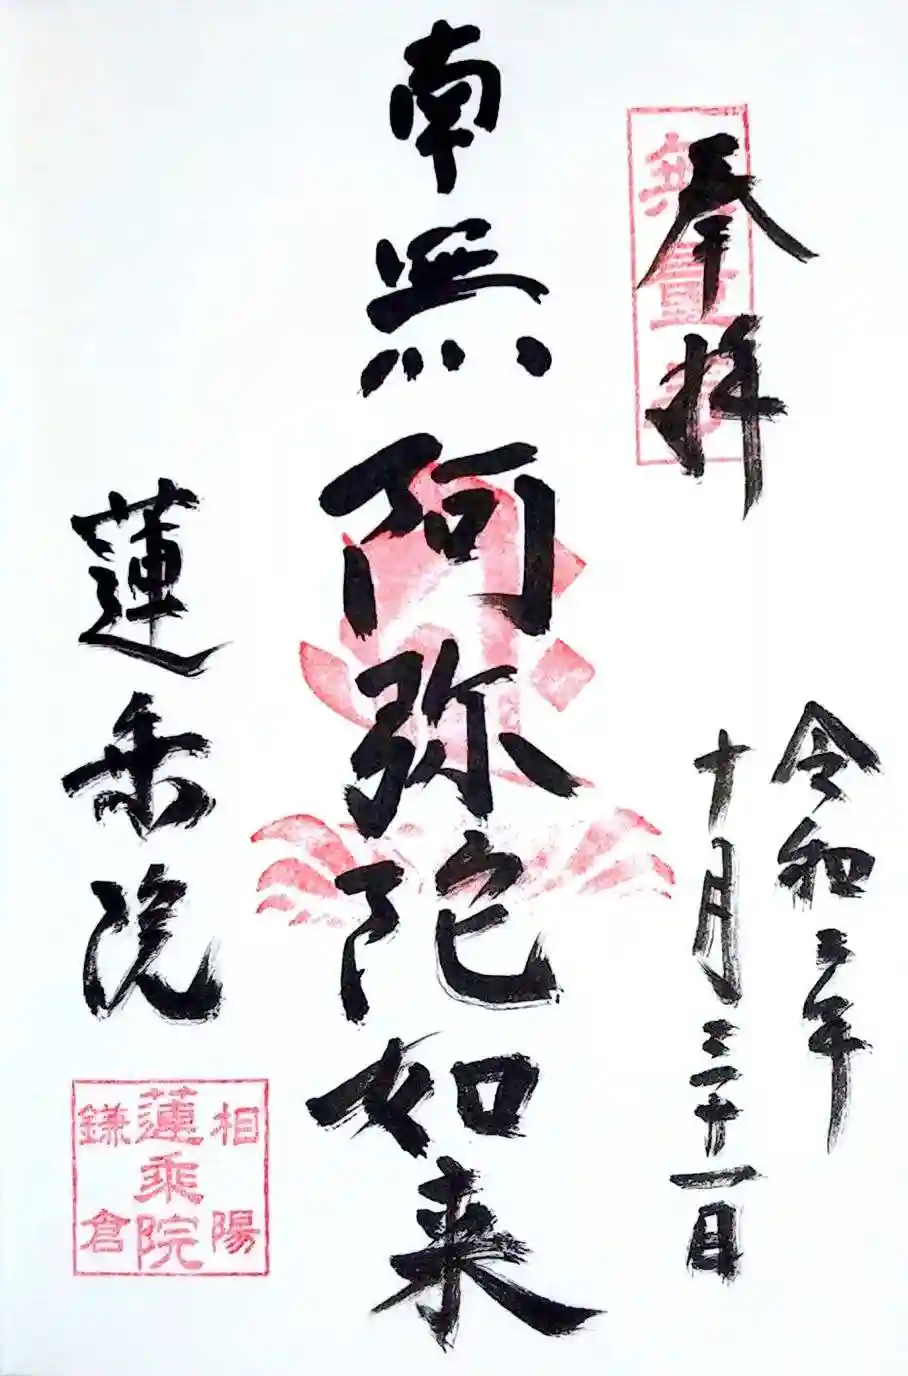 奉拝
無量
令和二年
十月三十一日
南無阿弥陀如来
蓮乗院
相陽
蓮乗院
鎌倉